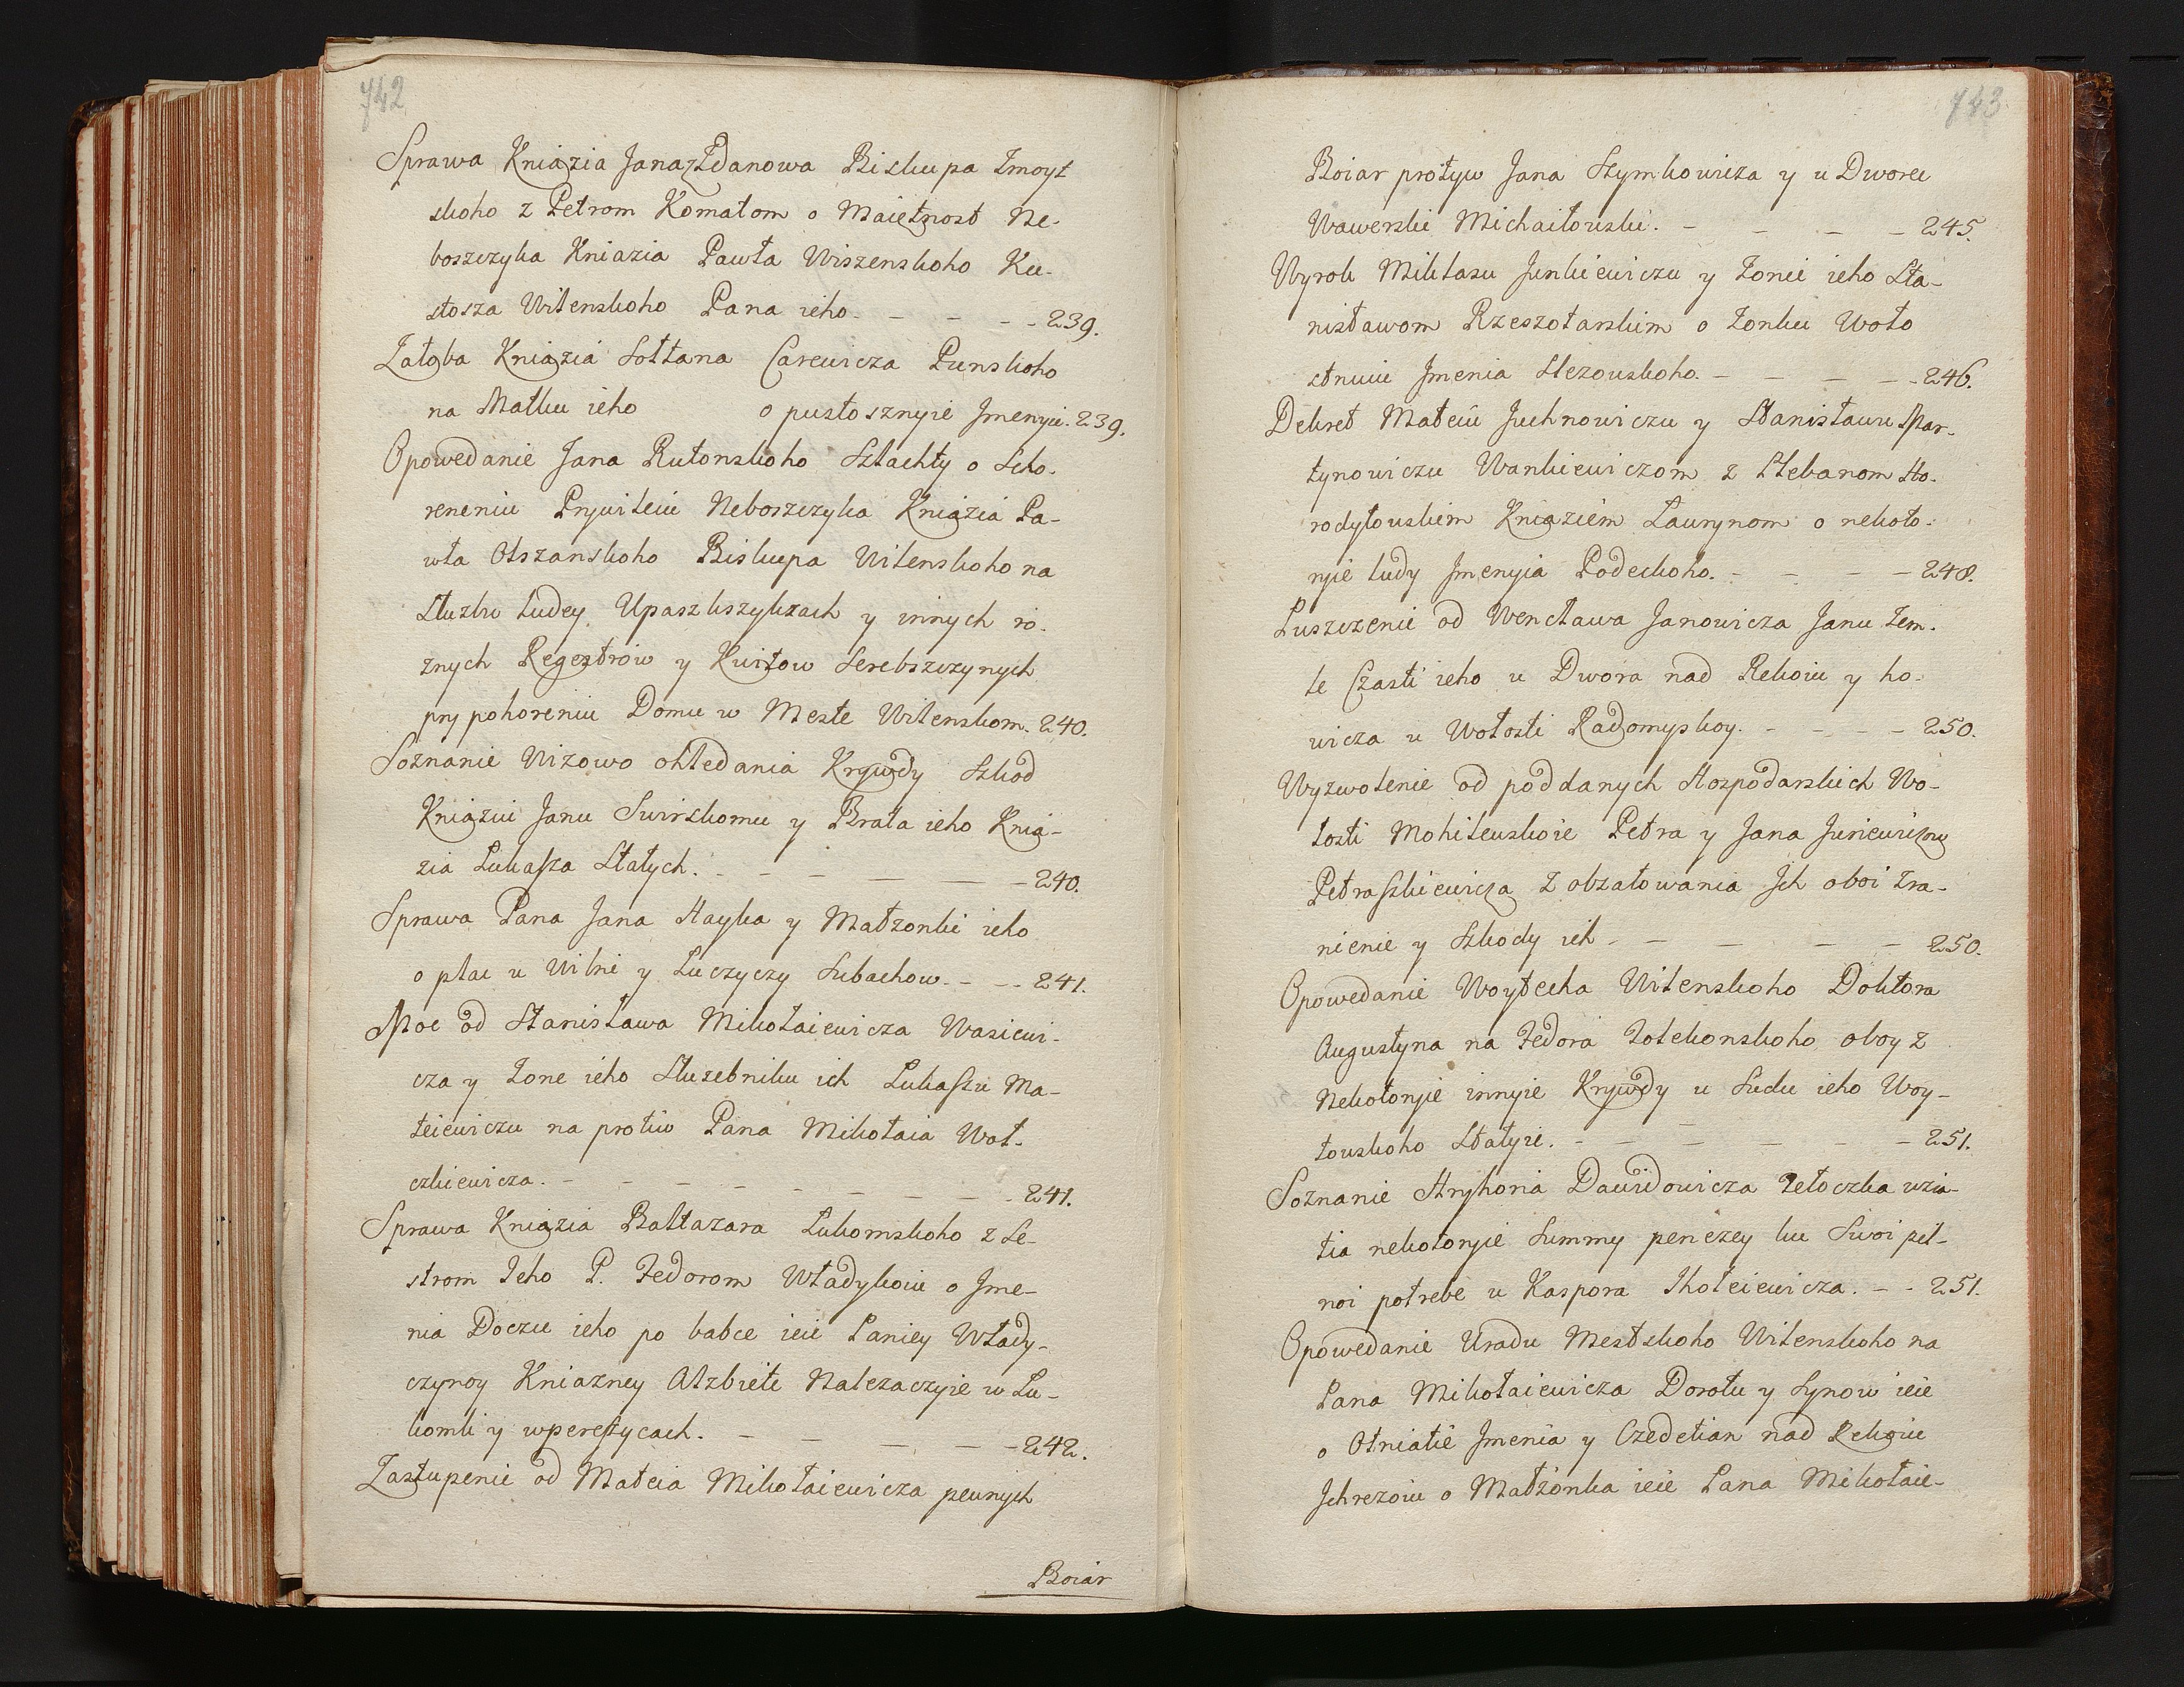 742
Sprawa Kniązia Jana Zdanowa Biskupa Zmoyt
skoho z Petrom Komatom o Maiętnost Ne-
boszczyka Kniazia Pawła Wiszenskoho Ku-
stosza Wilenskoho Pana ieho - - - - 239.
Załoba Kniązia Sołtana Carewicza Punskoho
na Matku ieho o pustosznyie Jmenyie. 239.
Opowedanie Jana Rutonskoho Szlachty o Scho-
reneniu Prywileiu Neboszczyka Kniązia Pa-
wła Olszanskoho Biskupa Wilenskoho na
Służbu ludey Upaszkszykzach y innych ro-
znych Regestrow y Kwitow Serebszczynych
pry pohoreniu Domu w Meste Wilenskom. 240.
Soznanie Wizowo ohledania Krywdy Szkod
Kniąziu Janu Swirskomu y Brata ieho Knią-
zia Lukasza Stałych. - - - - - 240.
Sprawa Pana Jana Hayka y Małzonki ieho
o płac u Wilni y Luczyczy Subachow. - - - 241.
Moc od Stanisława Mikołaiewicza Wasiewi-
cza y Zone ieho Służebniku ich Lukaszu Ma-
teiewiczu na protiw Pana Mikołaia Woł-
czkiewicza. - - - - - - - - - 241.
Sprawa Kniązia Baltazara Lukomskoho z Se-
strom Jeho P. Fedorom Władykoiu o Jme-
nia Doczu ieho po babce ieie Paniey Włady-
czynoy Kniazney Alzbiete Nalezaczyie w Lu-
komli y wperestycach. - - - - - 242.
Zastupenie od Mateia Mikołaiewicza pewnych
Boiar
743
Boiar protyw Jana Szymkowicza y u Dworcu
Wawerski Michaiłouski. - - - - 245.
Wyrok Mikłasu Junkiewiczu y Zonie ieho Sta-
nisławom Rzeszotarskim o Zonku Woło
stnuiu Jmenia Slezouskoho. - - - - - 246.
Dekret Mateiu Juchnowiczu y Stanisławu Mar-
tynowiczu Wankiewiczom z Plebanom Ho-
rodyłouskim Kniaziem Laurynom o nekoto-
ryie ludy Jmenyia Podeckoho. - - - - 248.
Puszczenie od Wencława Janowicza Janu Zem-
le Czasti ieho u Dwora nad Rekoiu y ho-
wicza u Wołosti Radomyskoy. - - - - 250.
Wyzwolenie od poddanych Hospodarskich Wo-
losti Mohileuskoie Petra y Jana Juriewiczu
Petraszkiewicza z obzałowania Jch oboi Zra-
nienie y Szkody ich - - - - - 250.
Opowedanie Woytecha Wilenskoho Doktora
Augustyna na Fedora Zolekonskoho oboy z
Nekotoryie innyie Krywdy u Sudu ieho Woy-
touskoho Stałyie. - - - - - - 251.
Soznanie Hryhoria Dawidowicza Tetoczka wzia-
tia nekotoryie Summy penezey ku Swoi pil-
noi potrebe u Kaspora Thoteiewicza. - - 251.
Opowedanie Uradu Mestskoho Wilenskoho na
Pana Mikołaiewicza Dorotu y Synow ieie
o Otniatie Jmenia y Czedelian nad Rekoiu
Jchrezoiu o Małzonka ieie Pana Mikołaie-